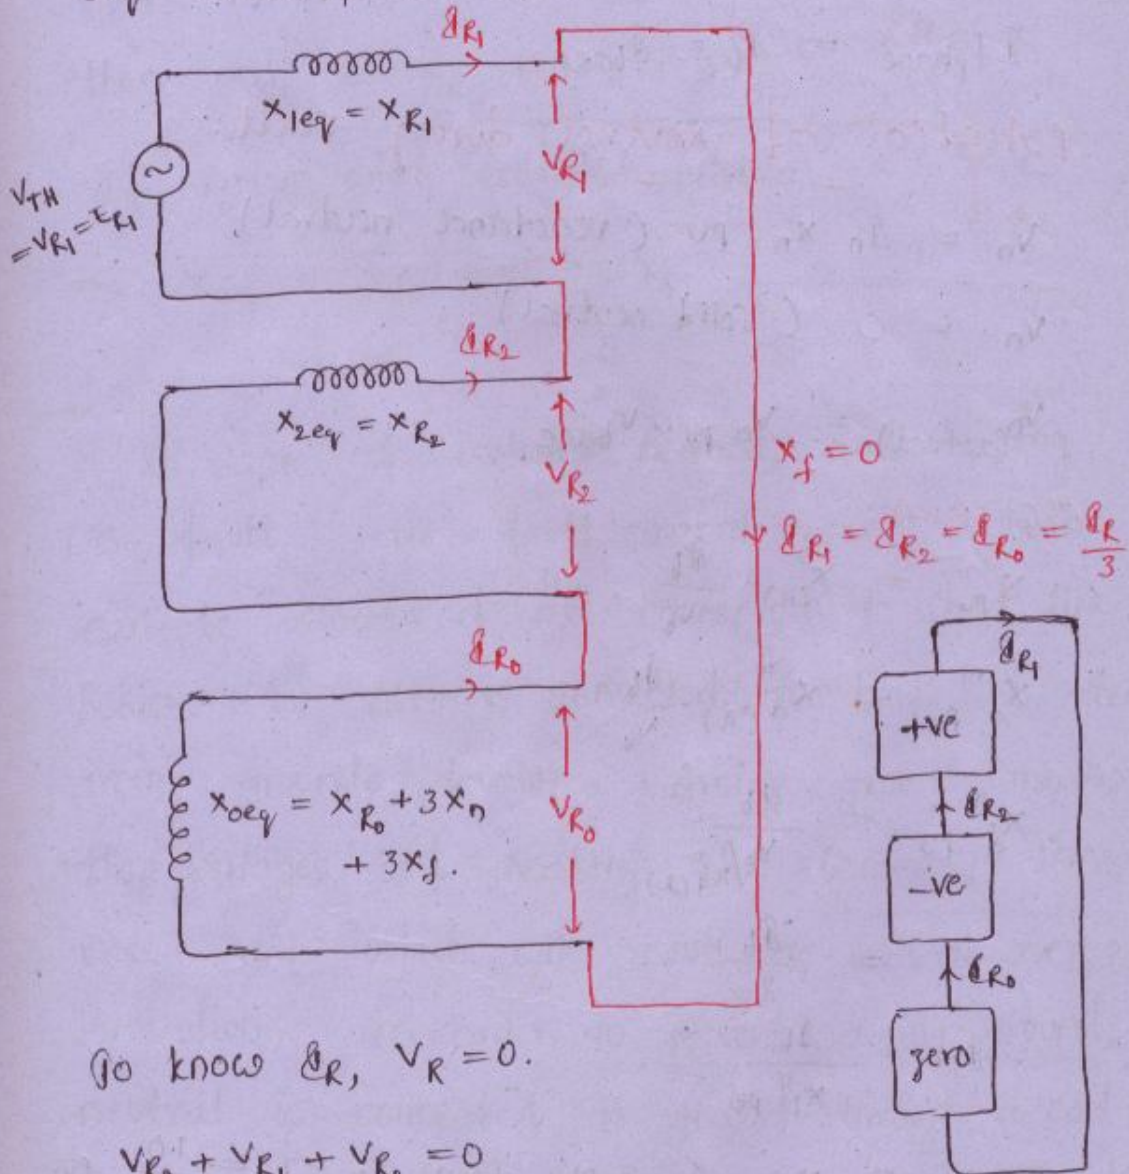 I_R1
X_1eq = X_R1
V_TH
= V_R1 = E_R1
V_R1
I_R2
X_2eq = X_R2
V_R2
X_f = 0
I_R1 = I_R2 = I_R0 = I_R/3
I_R0
X_0eq = X_R0 + 3X_n
+ 3X_f.
V_R0
I_R1
+ve
I_R2
-ve
I_R0
zero
To know I_R, V_R = 0.
V_R0 + V_R1 + V_R2 = 0